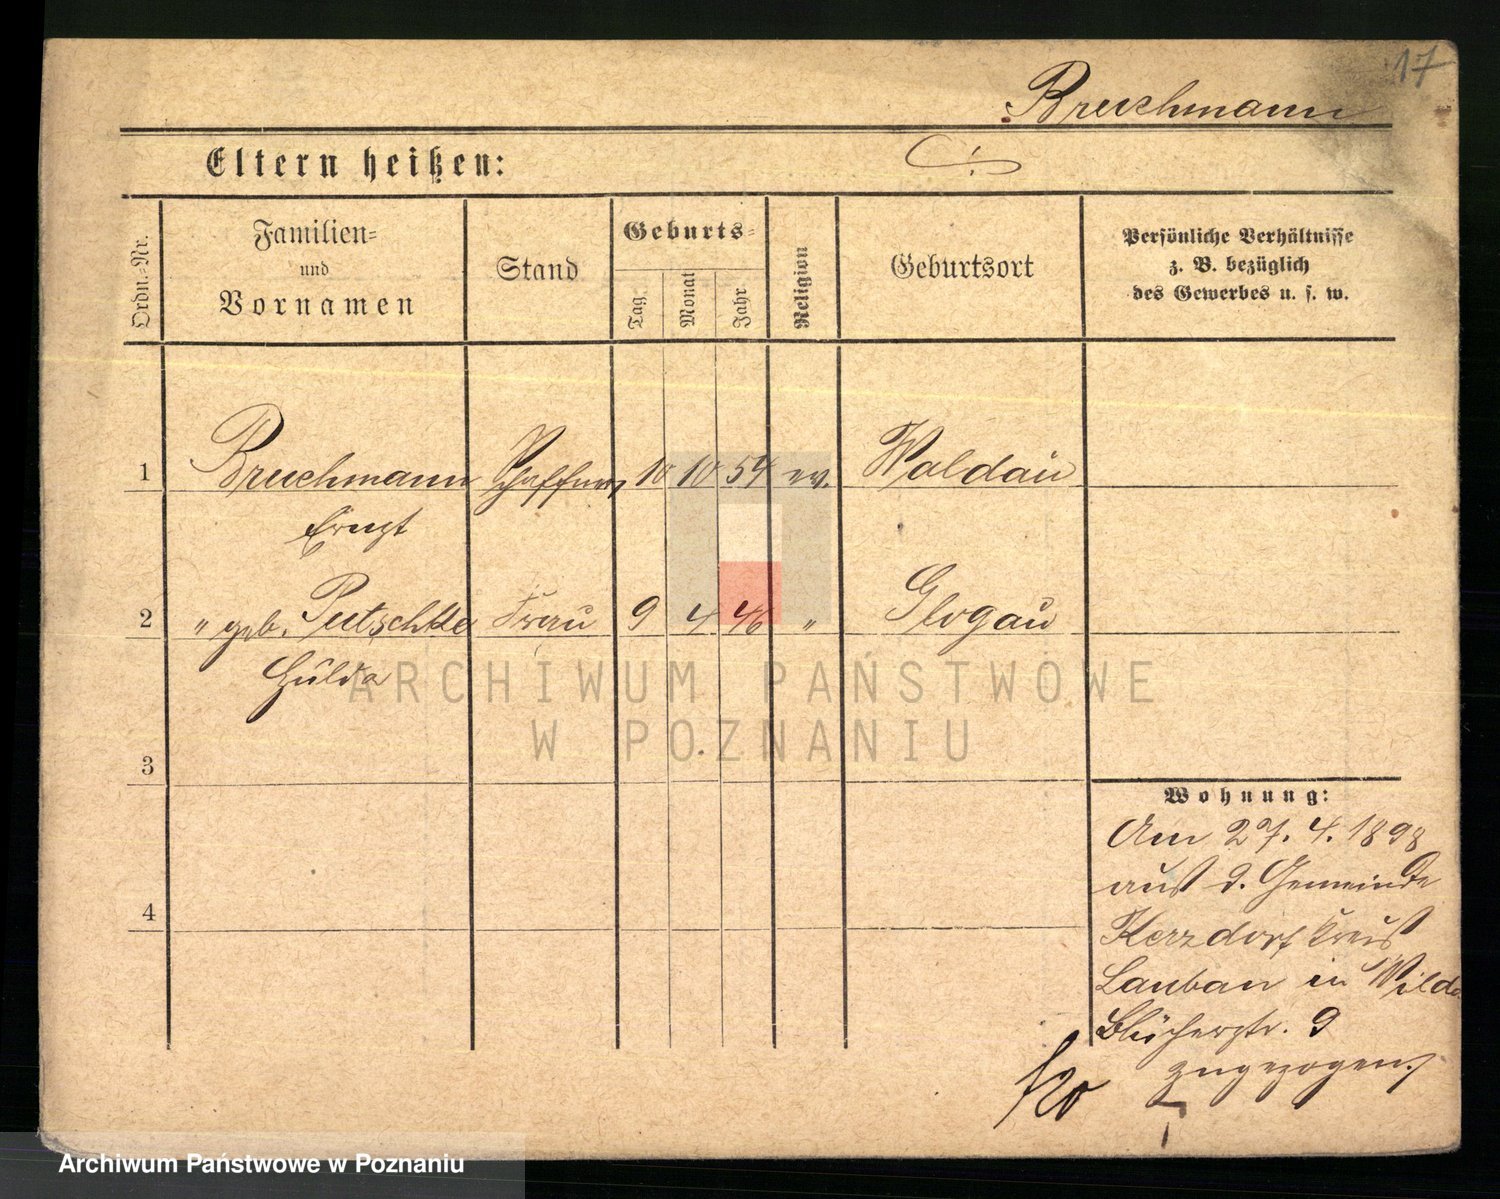 17
Bruchmann
Eltern heißen:
Ordn.-Nr.
Familien-
und
Vornamen
Stand
Geburts-
Tag.
Monat
Jahr.
Religion
Geburtsort
Persönliche Verhältnisse
z. B. bezüglich
des Gewerbes u. s. w.
1 Bruchmann Schaffner 10 10 54 ev. Waldau
Ernst
2 " geb. Putschke Frau 9 4 46 " Glogau
Hulda
ARCHIWUM PAŃSTWOWE
W POZNANIU
3
4
Wohnung:
Am 27. 4. 1898
aus d. Gemeinde
Kerzdorf Kreis
Lauban in Wilda
Blücherstr. 9
zugezogen.
Archiwum Państwowe w Poznaniu